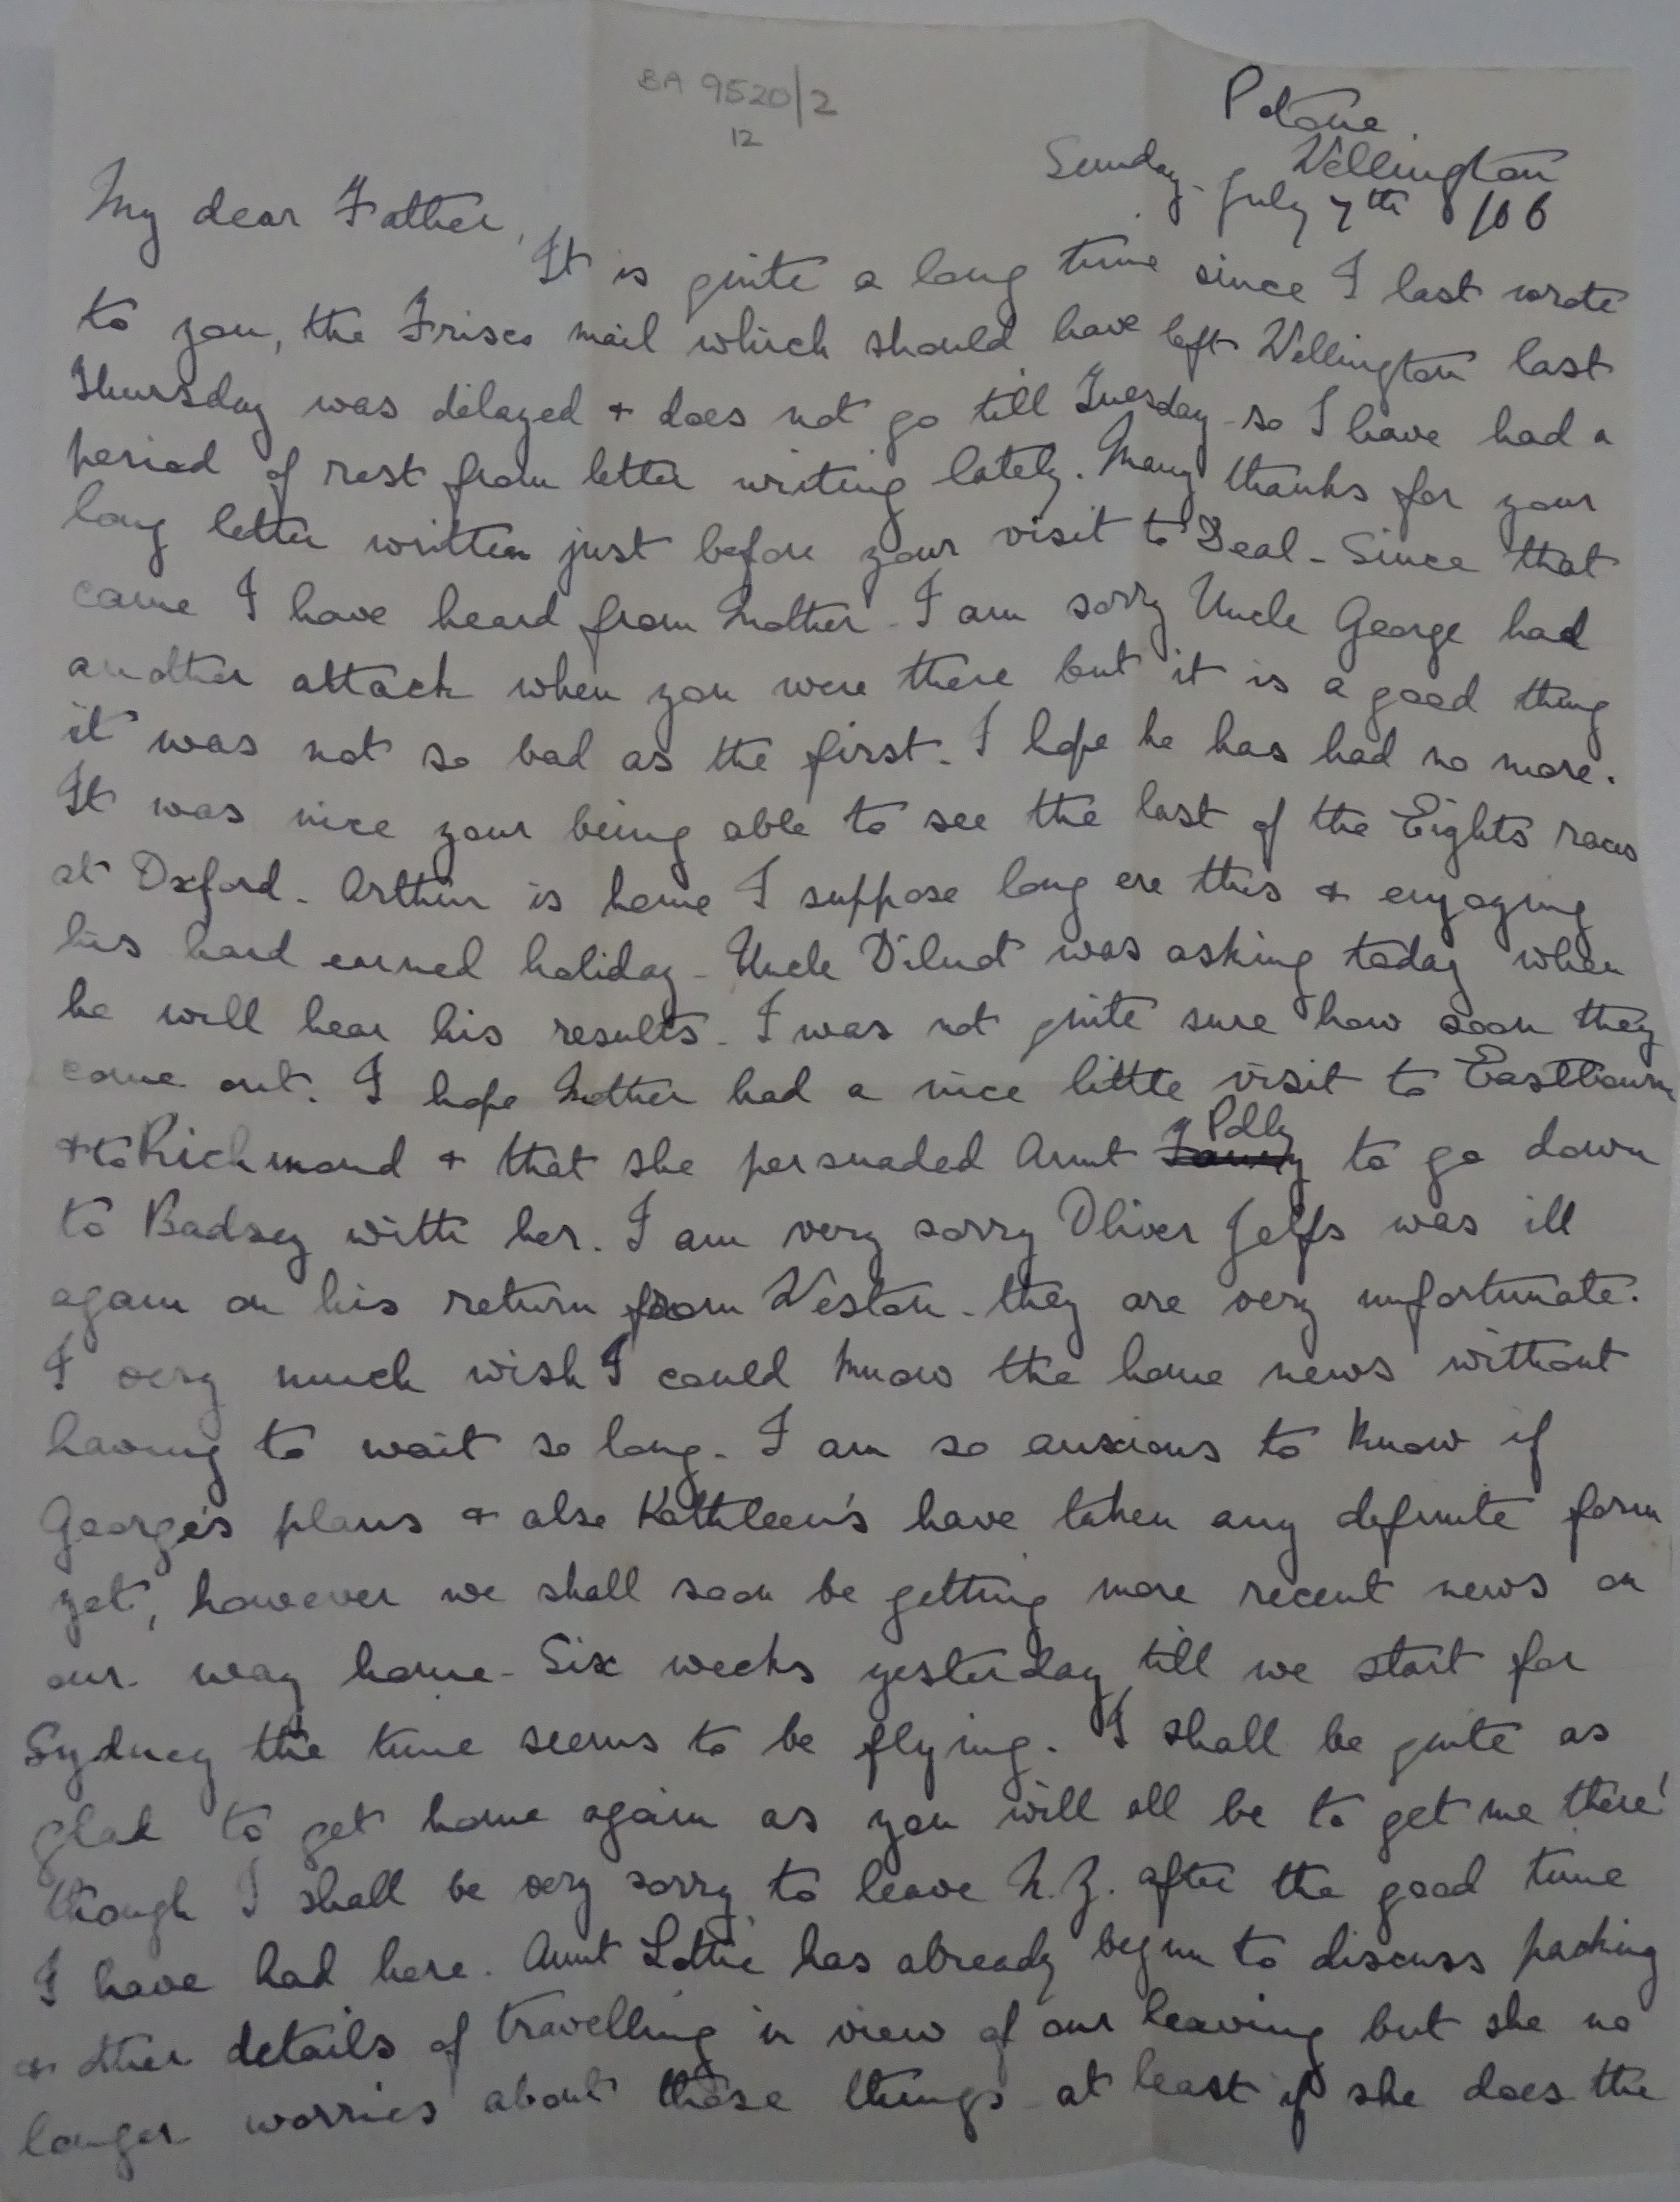 BA 9520/2
12
Petone.
Wellington
Sunday. July 7th /06
My dear Father,
It is quite a long time since I last wrote
to you, the Frisco mail which should have left Wellington last
Thursday was delayed + does not go till Tuesday - so I have had a
period of rest from letter writing lately. Many thanks for your
long letter written just before your visit to Deal - Since that
came I have heard from Mother - I am sorry Uncle George had
another attack when you were there but it is a good thing
it was not so bad as the first. I hope he has had no more.
It was nice your being able to see the last of the Eights races
at Oxford - Arthur is home I suppose long ere this + enjoying
his hard earned holiday - Uncle Dilnot was asking today when
he will hear his results. I was not quite sure how soon they
come out. I hope Mother had a nice little visit to Eastbourne
+ to Richmond + that she persuaded Aunt Fanny Polly to go down
to Badsey with her. I am very sorry Oliver Jelfs was ill
again on his return from Weston - they are very unfortunate.
I very much wish I could know the home news without
having to wait so long - I am so anxious to know if
George's plans + also Kathleen's have taken any definite form
yet, however we shall soon be getting more recent news on
our way home - Six weeks yesterday till we start for
Sydney the time seems to be flying. I shall be quite as
glad to get home again as you will all be to get me there!
though I shall be very sorry to leave N.Z. after the good time
I have had here. Aunt Lottie has already begun to discuss packing
+ other details of travelling in view of our leaving but she no
longer worries about these things - at least if she does the